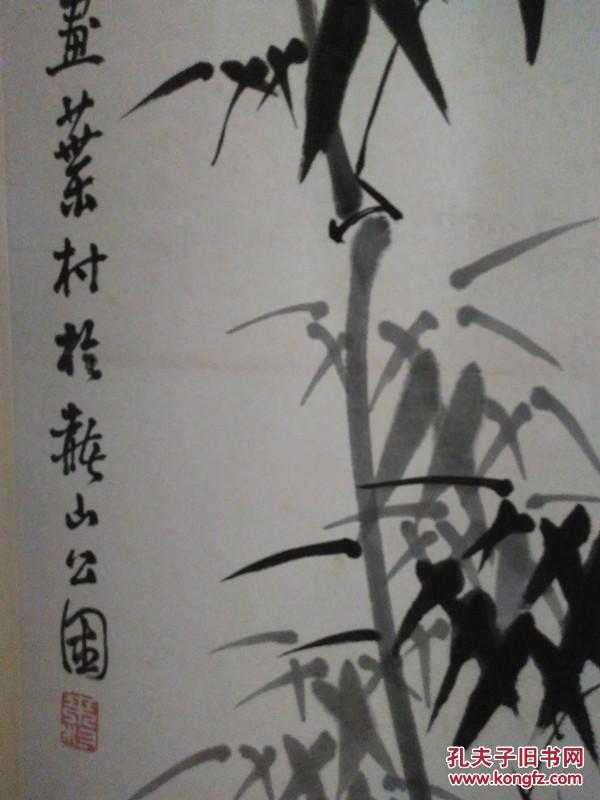 畫葉村於山公園
孔夫子旧书网
www.kongfz.com